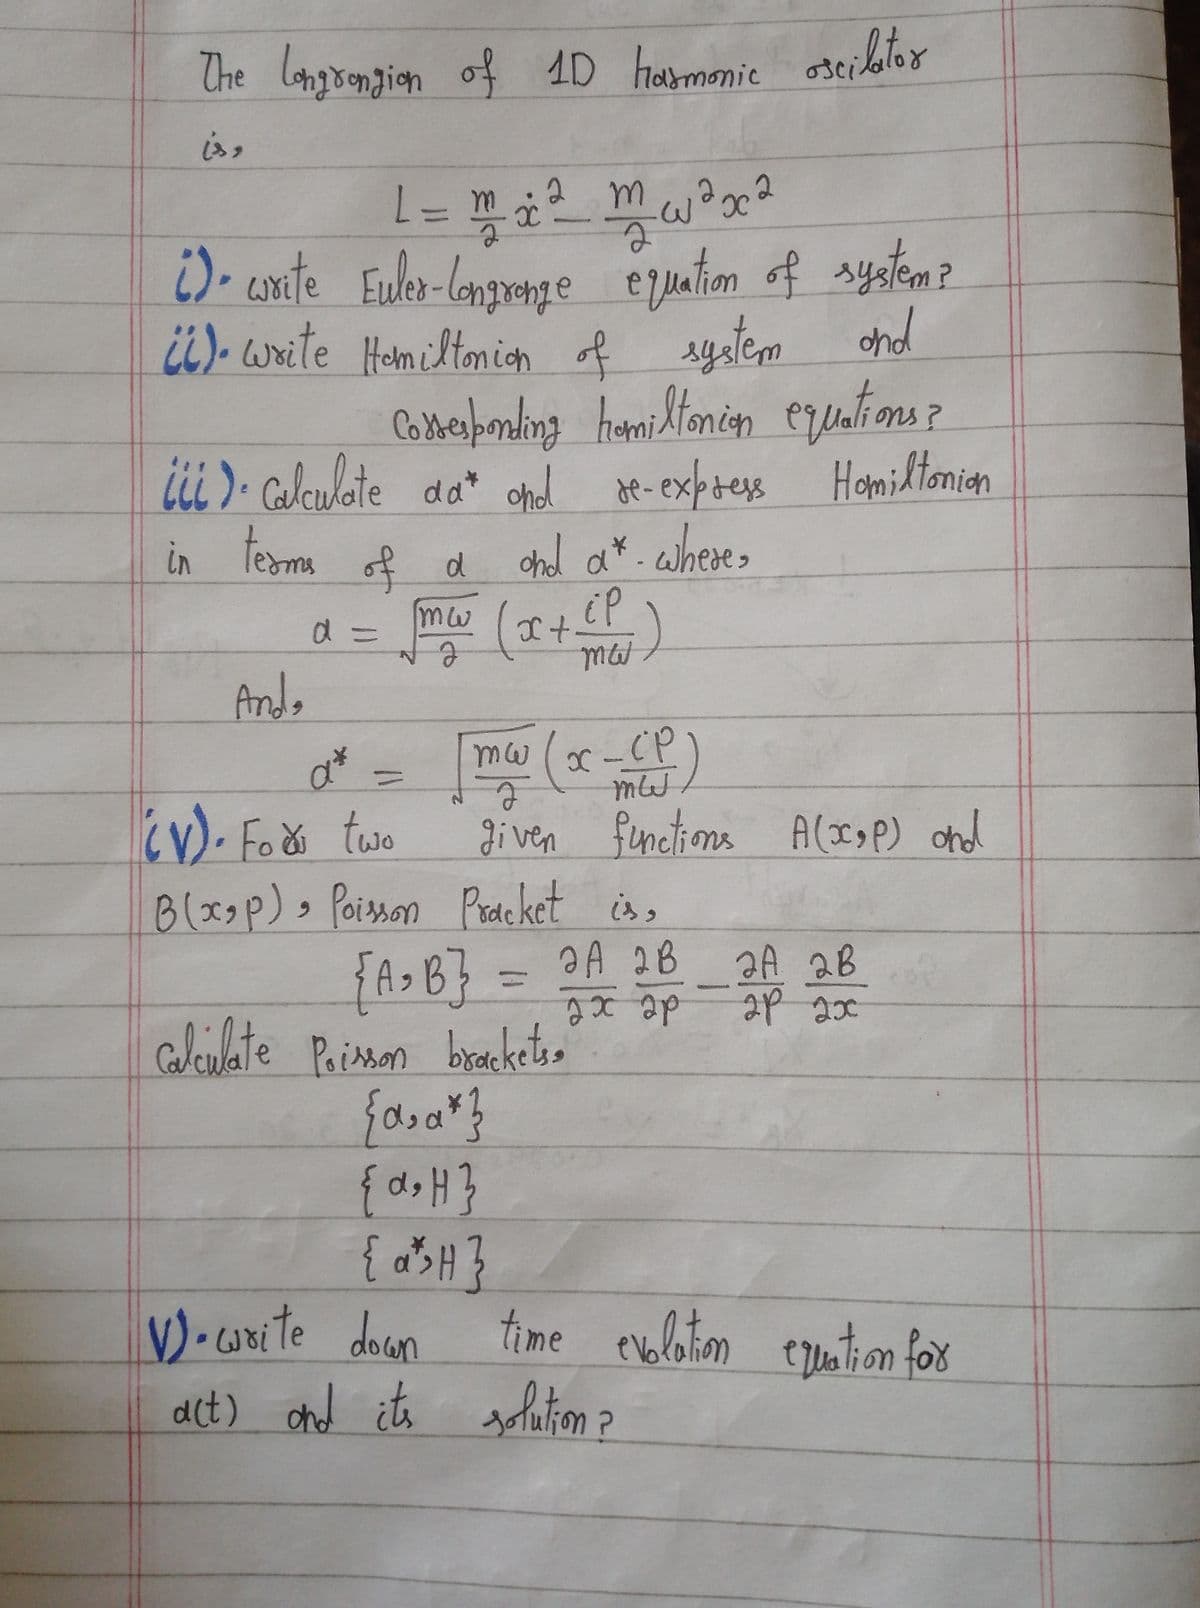 The Langrangian of 1D harmonic oscilator
is,
L = m/2 ẋ² - m/2 ω²x²
i). write Euler-Langrange equation of system?
ii). write Hamiltonian of system and
Corresponding hamiltonian equations?
iii). Calculate aa* and re-express Hamiltonian
in terms of a and a*. where,
a = √(mω/2) (x + iP/mω)
And,
a* = √(mω/2) (x - iP/mω)
iv). For two given functions A(x,P) and
B(x,p), Poisson Pracket is,
{A,B} = ∂A/∂x ∂B/∂p - ∂A/∂P ∂B/∂x
Calculate Poisson brackets,
{a,a*}
{a,H}
{a*,H}
V). write down time evolation equation for
a(t) and its solution?